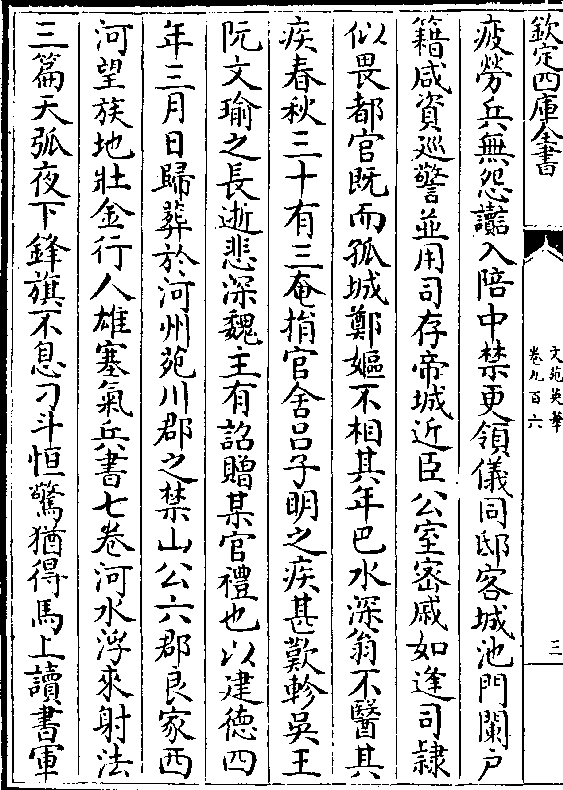 欽定四庫全書
文苑英華
卷九百六
三
疲勞兵無怨讟入陪中禁更領儀同邸客城池門闌户
籍咸資巡警並用司存帝城近臣公室密戚如逢司隷
似畏都官既而孤城鄭嫗不相其年巴水深翁不醫其
疾春秋三十有三奄捐官舍吕子明之疾甚歎軫吳王
阮文瑜之長逝悲深魏主有詔贈某官禮也以建德四
年三月日歸葬於河州苑川郡之禁山公六郡良家西
河望族地壯金行人雄塞氣兵書七卷河水浮來射法
三篇天弧夜下鋒旗不息刁斗恒驚猶得馬上讀書軍